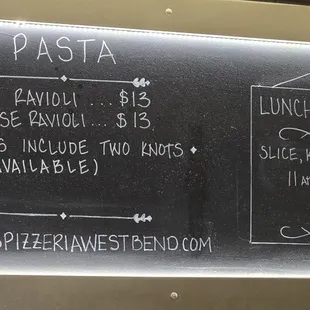 PASTA
RAVIOLI ... $13
SE RAVIOLI ... $13
S INCLUDE TWO KNOTS
AVAILABLE)
PIZZERIAWESTBEND.COM
LUNCH
SLICE, K
11 A